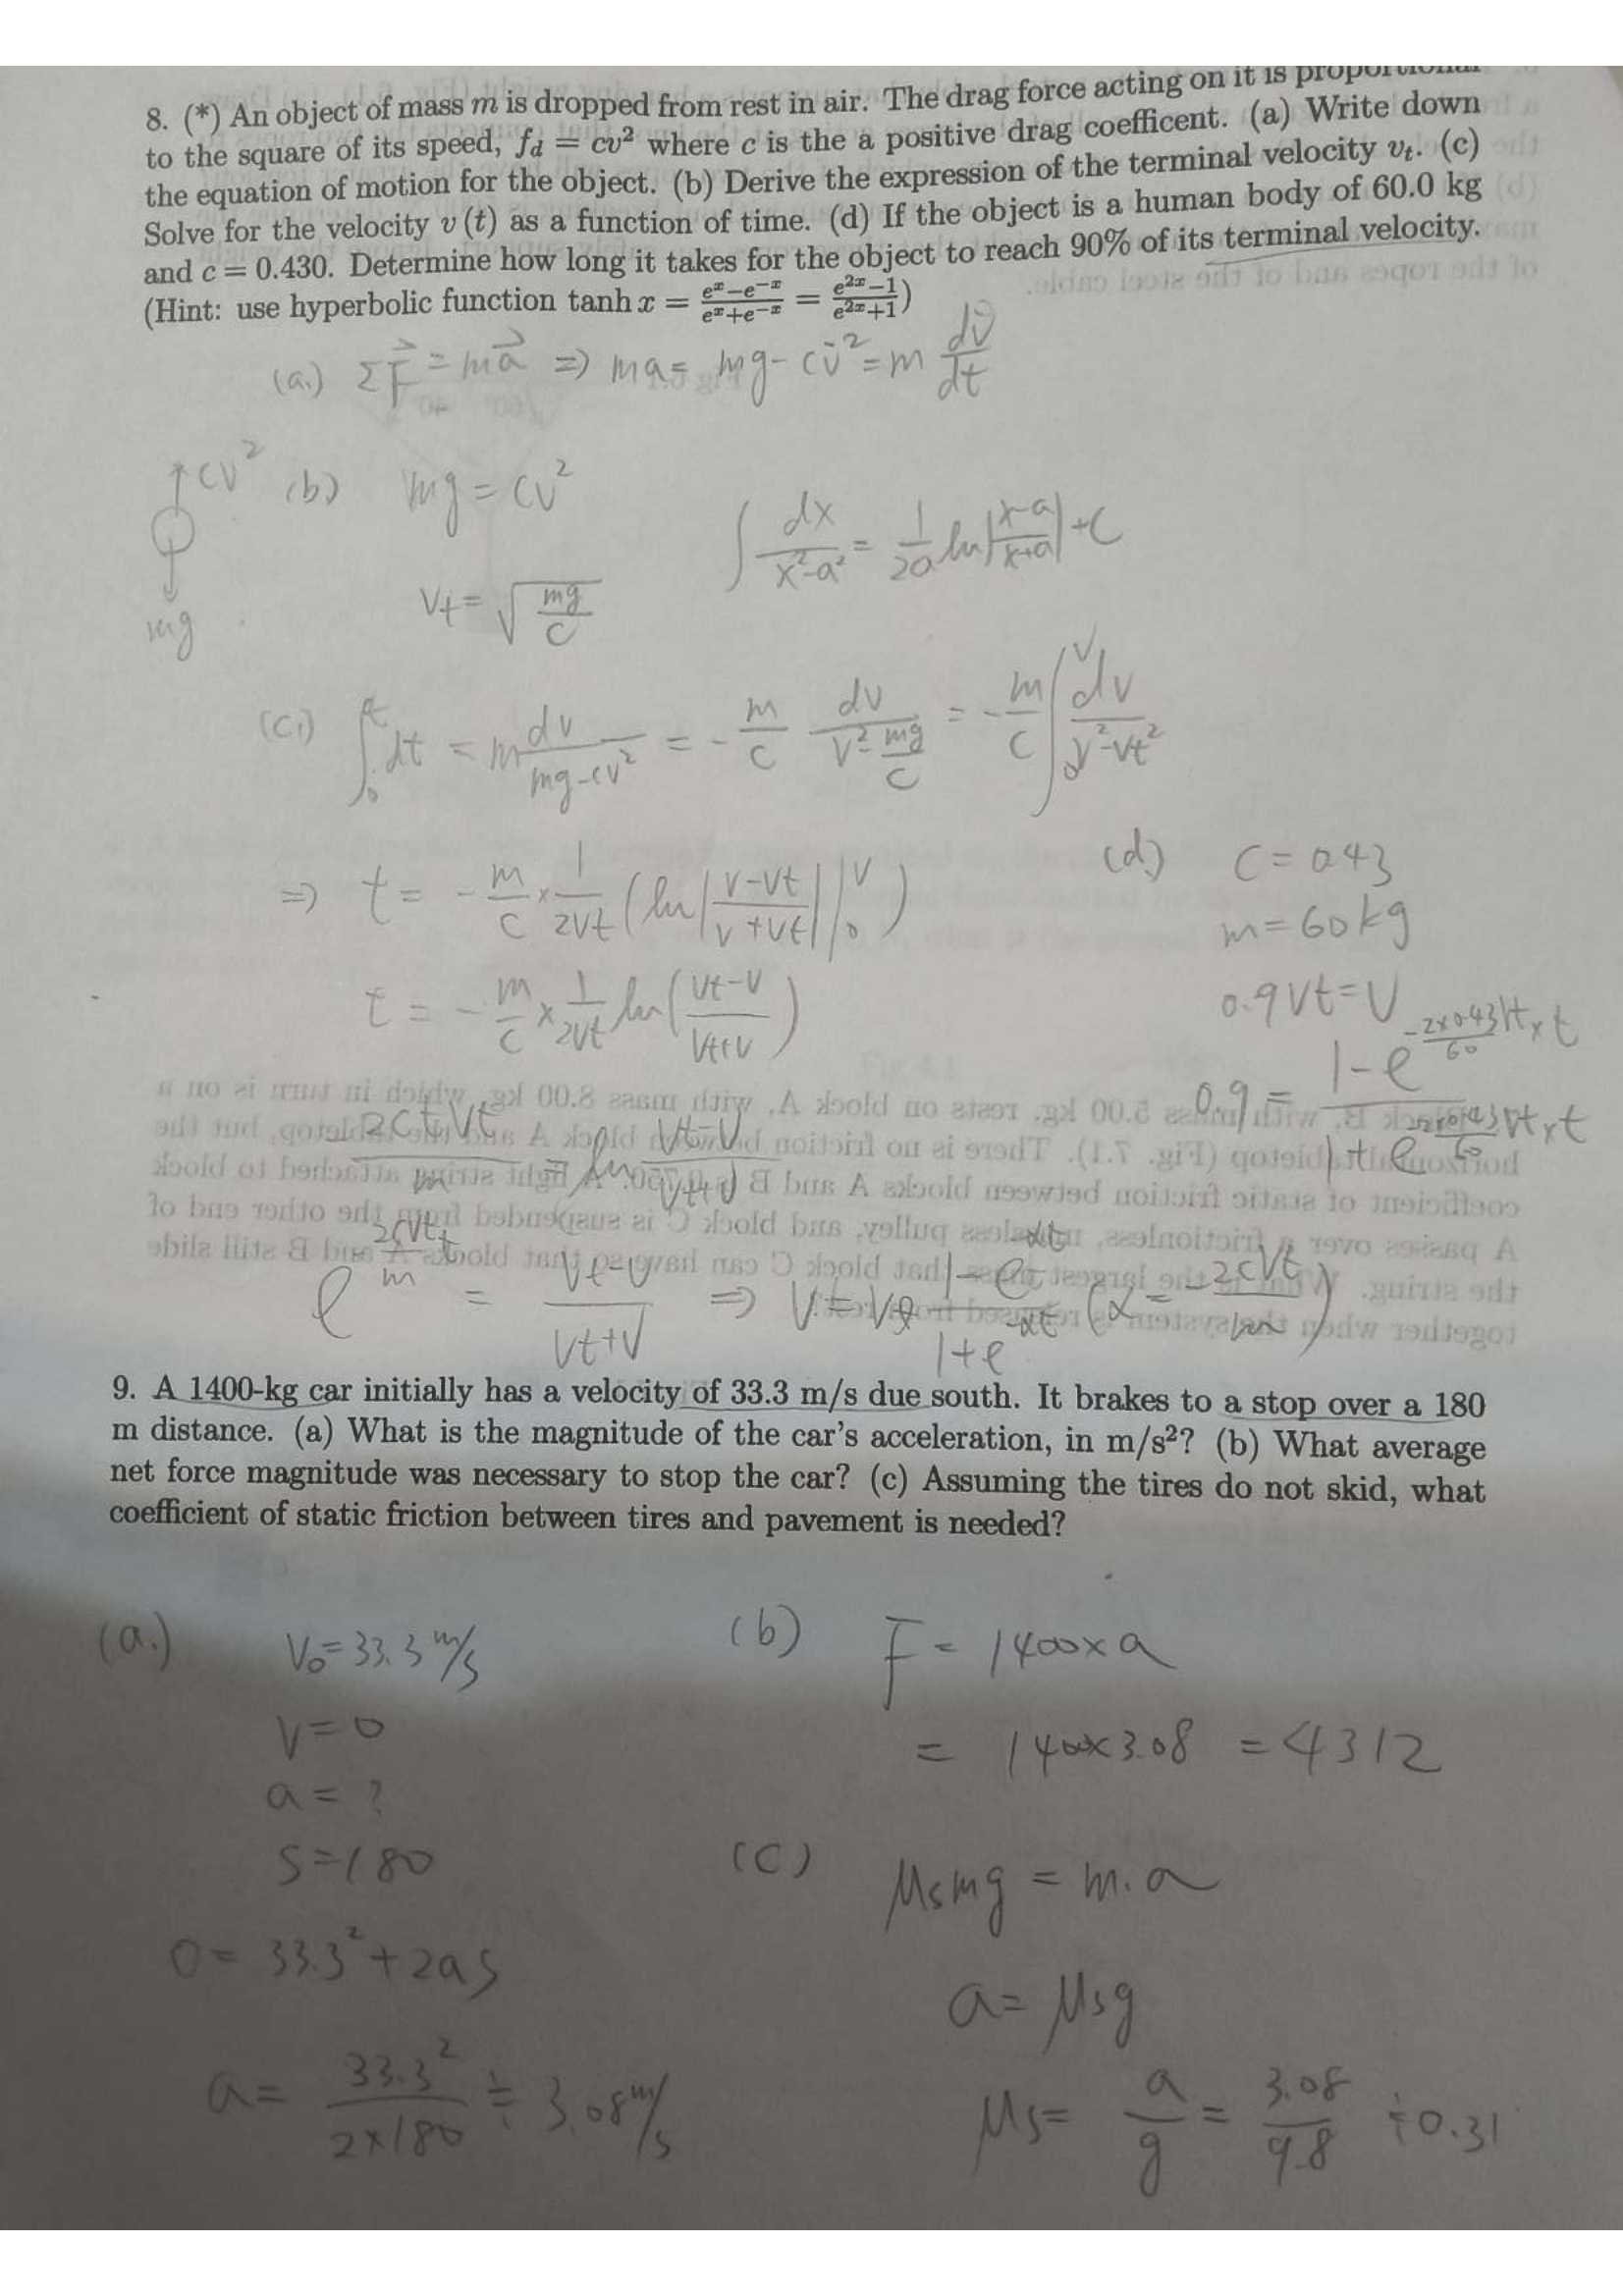 8. (*) An object of mass m is dropped from rest in air. The drag force acting on it is proportional
to the square of its speed, f_d = cv² where c is the a positive drag coefficent. (a) Write down
the equation of motion for the object. (b) Derive the expression of the terminal velocity v_t. (c)
Solve for the velocity v (t) as a function of time. (d) If the object is a human body of 60.0 kg
and c = 0.430. Determine how long it takes for the object to reach 90% of its terminal velocity.
(Hint: use hyperbolic function tanh x = (e^x−e^−x)/(e^x+e^−x) = (e^2x−1)/(e^2x+1))
(a.) ΣF = ma ⇒ ma = mg - cv² = m dv/dt
cv²
mg
(b) mg = cv²
v_t = √(mg/c)
∫ dx/(x²-a²) = 1/2a ln|(x-a)/(x+a)| + C
(c.) ∫₀^t dt = m dv/(mg-cv²) = - m/c dv/(v² - mg/c) = - m/c ∫₀^v dv/(v²-vt²)
⇒ t = - m/c × 1/2vt (ln|(v-vt)/(v+vt)| |₀^v)
t = - m/c × 1/2vt ln((vt-v)/(vt+v))
2ctvt/m = ln (vt-v)/(vt+v)
e^(2cvt/m t) = (vt-v)/(vt+v) ⇒ v = vt (1-e^-αt)/(1+e^-αt) (α = -2cvt/m)
(d.) c = 0.43
m = 60kg
0.9vt = v
0.9 = (1-e^(-2×0.43vt/60 × t))/(1+e^(-2×0.43vt/60 × t))
9. A 1400-kg car initially has a velocity of 33.3 m/s due south. It brakes to a stop over a 180
m distance. (a) What is the magnitude of the car's acceleration, in m/s²? (b) What average
net force magnitude was necessary to stop the car? (c) Assuming the tires do not skid, what
coefficient of static friction between tires and pavement is needed?
(a.) v₀ = 33.3 m/s
v = 0
a = ?
S = 180
0 = 33.3² + 2as
a = 33.3²/(2×180) ≒ 3.08 m/s
(b) F = 1400 × a
= 1400 × 3.08 = 4312
(c) μsmg = m.a
a = μsg
μs = a/g = 3.08/9.8 ≒ 0.31